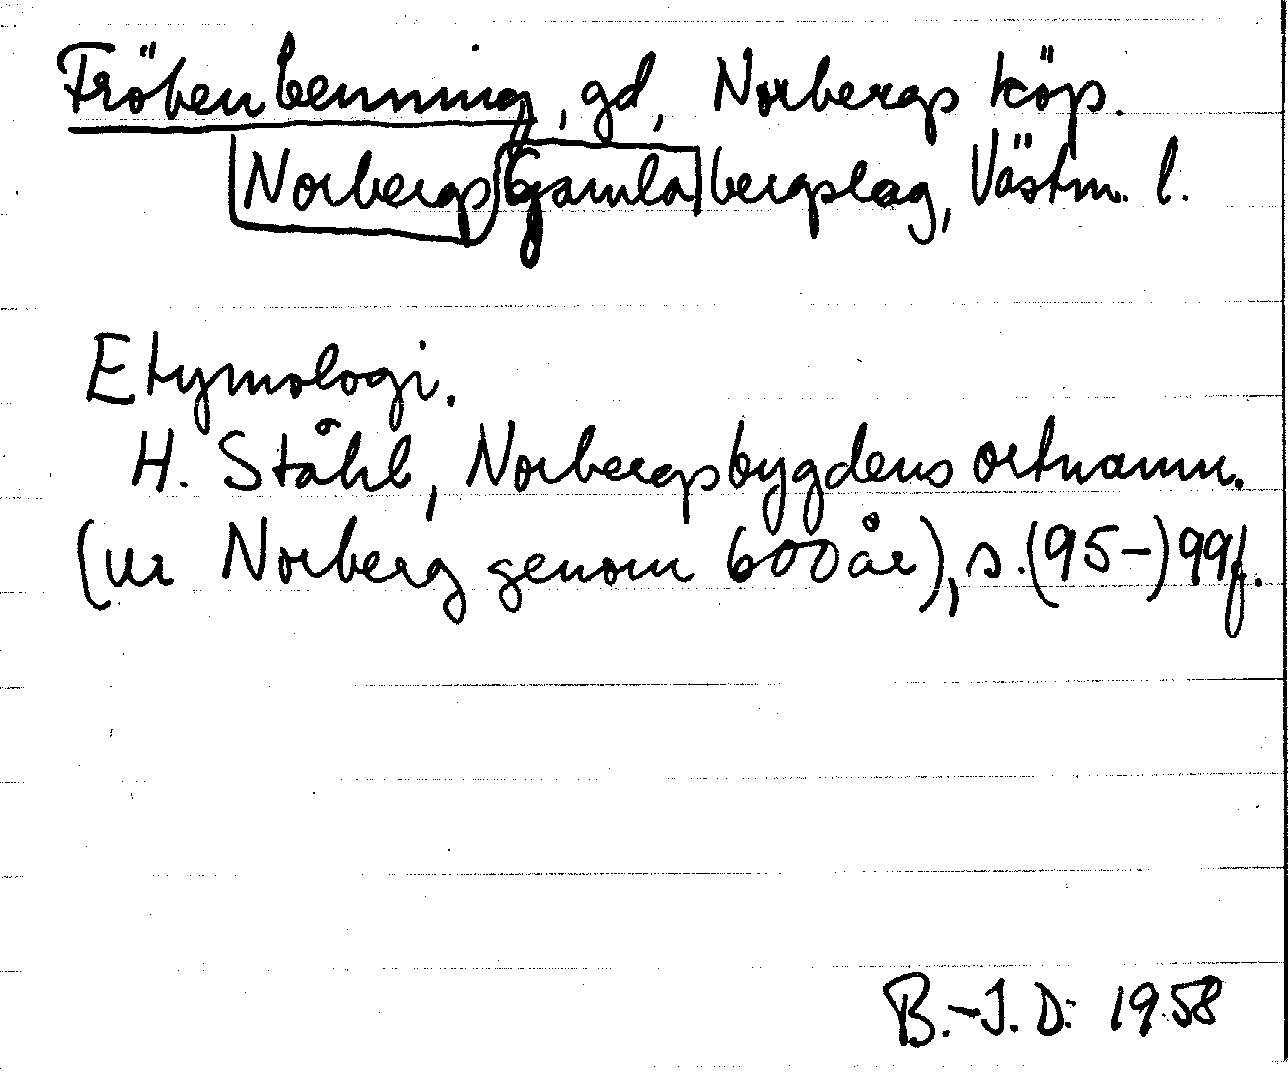 Fröbenbenning, gd, Norbergs köp.
Norbergs Gamla bergslag, Västm. l.
Etymologi.
H. Ståhl, Norbergsbygdens ortnamn.
(ur Norberg genom 600 år), s. (95-) 99f.
B.-J. D: 1958